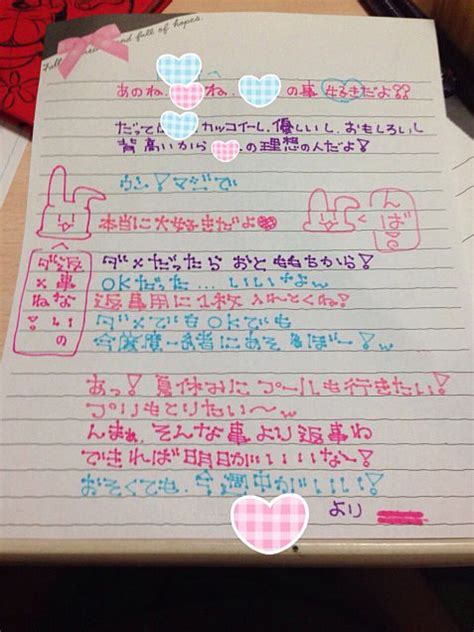 and full of hopes.
あのね、 ね、 の事 好きだよ??
だって カッコイーし、優しいし、おもしろいし
背高いから の理想の人だよ!
ウン!マジで
本当に大好きだよ
んば
返事ないの
ダメね!
ダメだったら おともだちから!
OKだった…いいなぁw
返事用に1枚 入れとくね!
ダメでもOKでも
今度 一緒にあそぼー!
あっ!夏休みに プールも行きたい!
プリもとりたい〜w
んまぁ、そんな事より返事ね
できれば明日がいいな〜!
おそくても、今週中がいい!
より